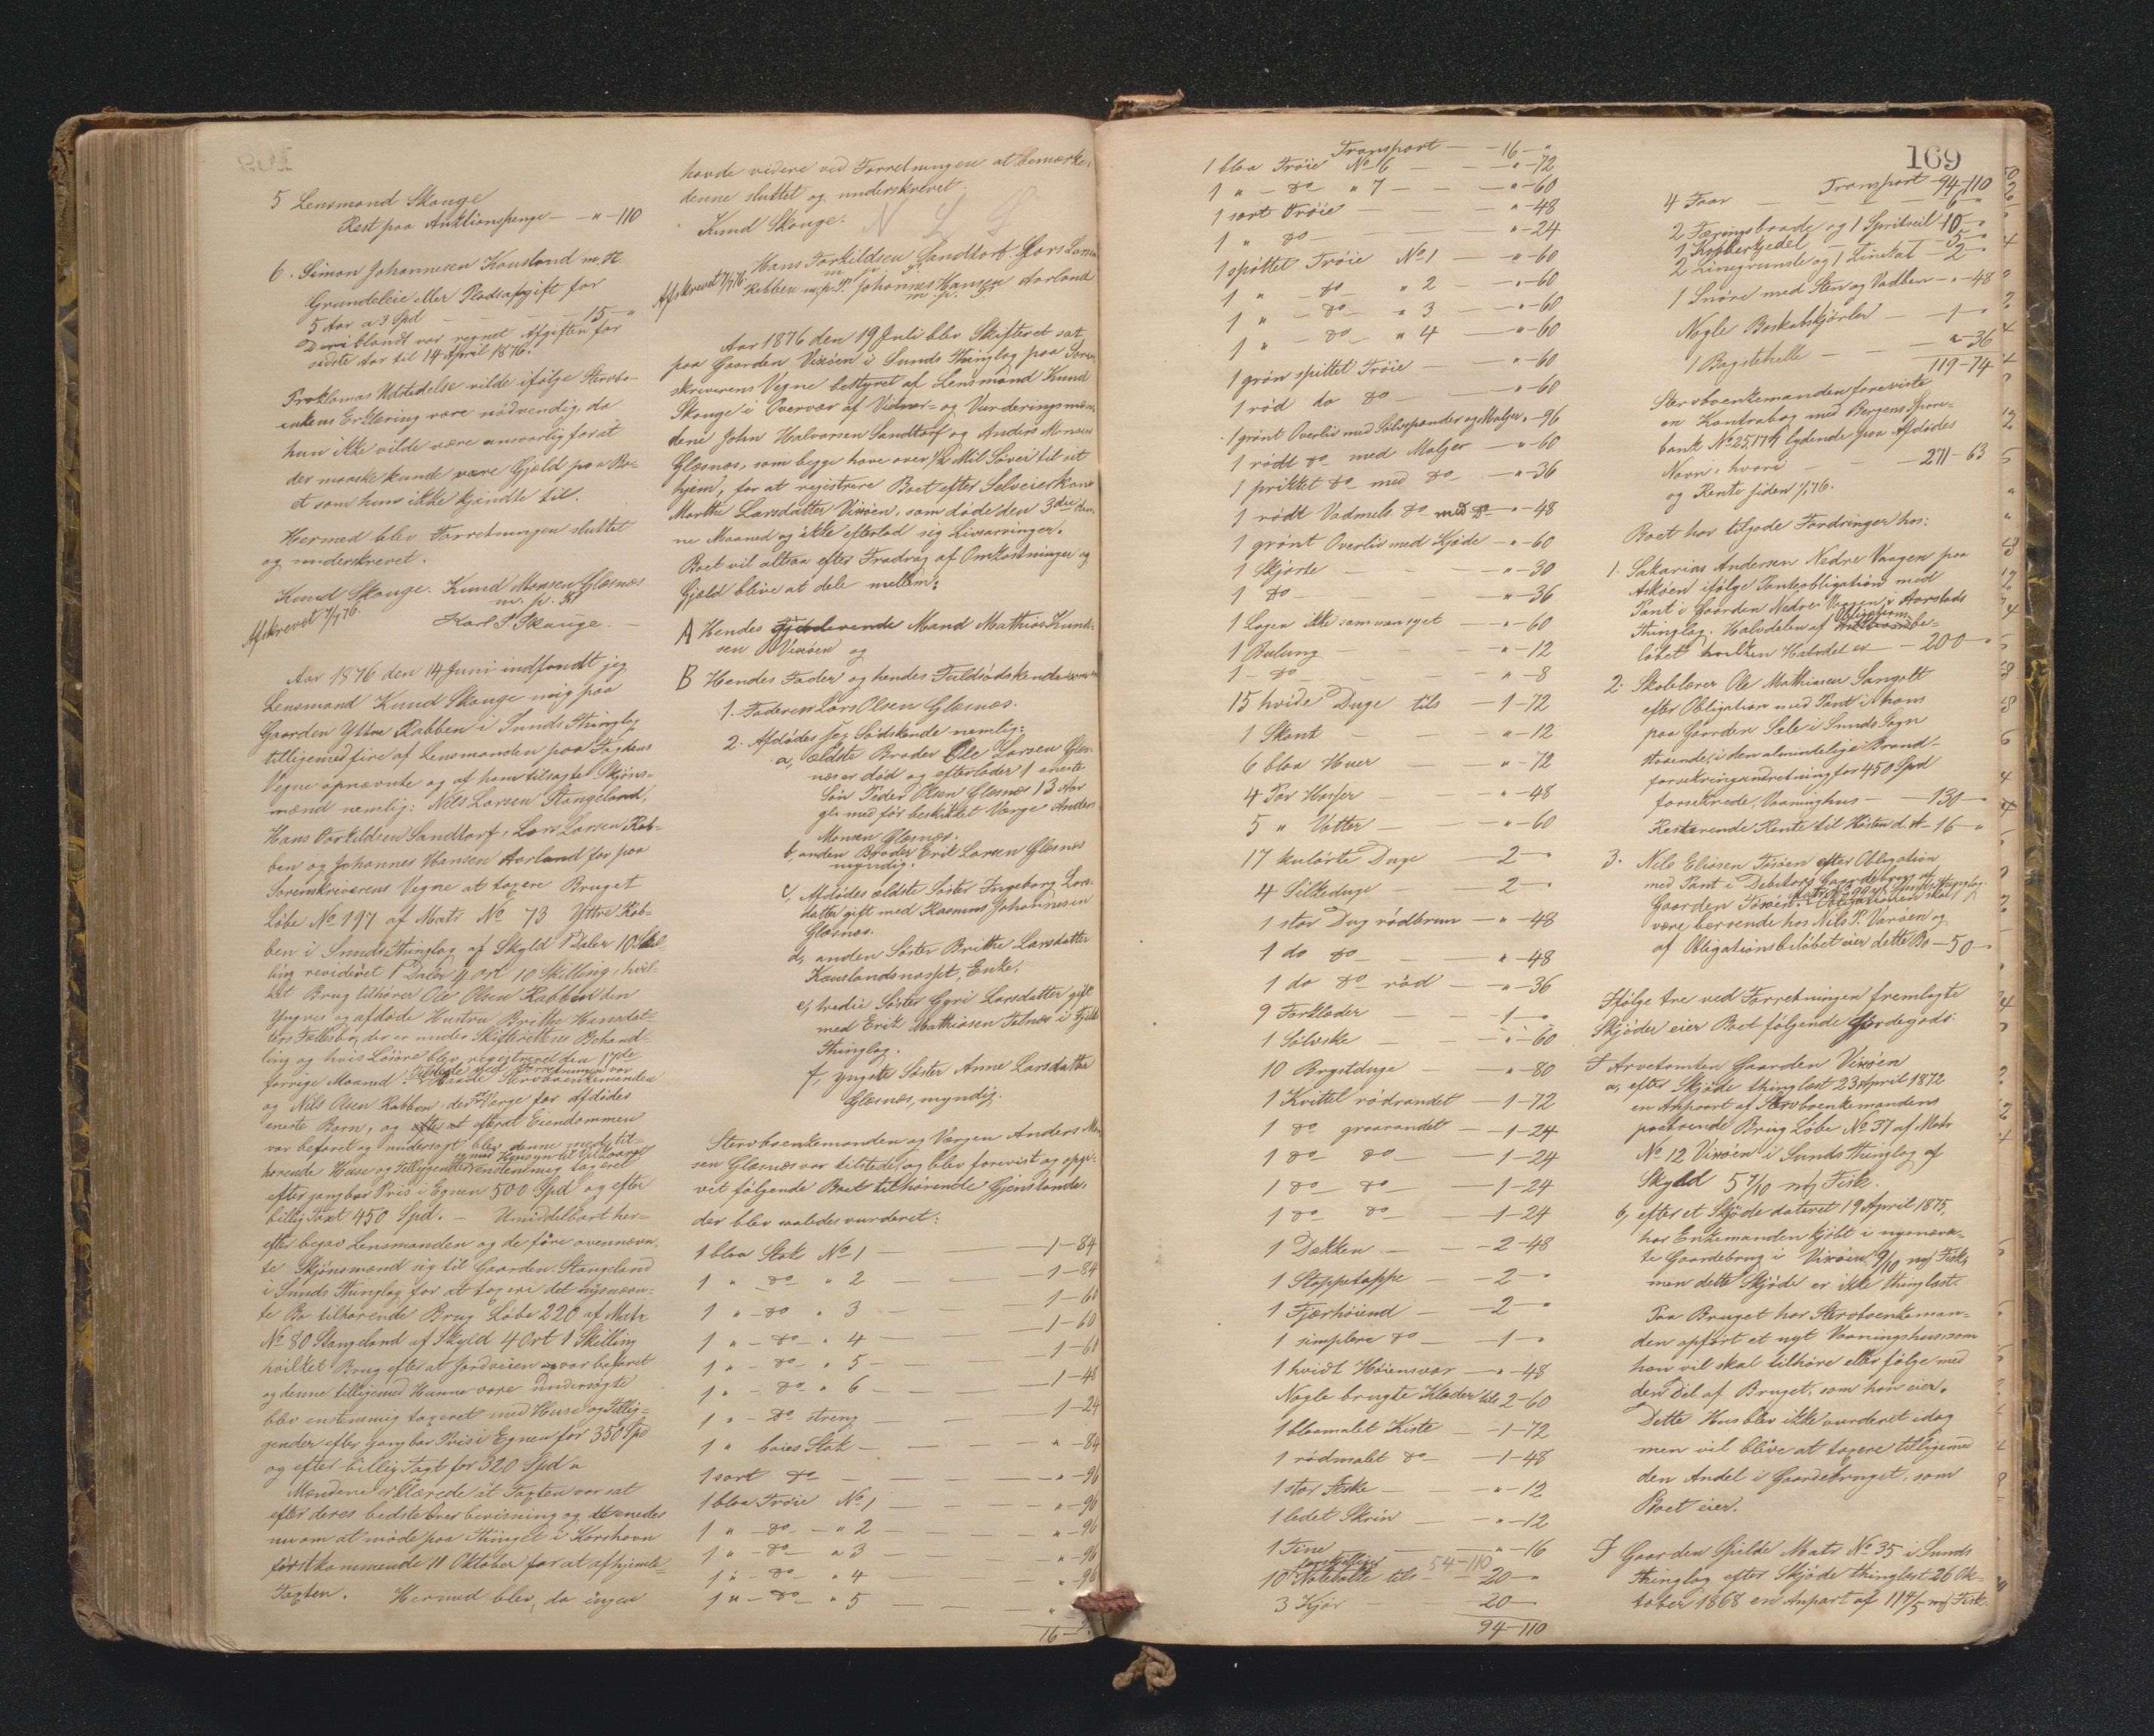 5 Lensmand Skauge
Rest paa Auktionspenge — " - 110
6. Simon Johannesen Kausland m. H.
Grundeleie eller Pladsafgift for
5 Aar a 3 Spd — — — 15 - "
Deriblandt var regnet Afgiften for
sidste Aar til 14 April 1876.
Proklamas Udstedelse vilde ifølge Stervbo-
enkens Erklæring være nødvendig, da
hun ikke vilde være ansvarlig for at
der maaske kunde være Gjæld paa Bo-
et som hun ikke kjendte til.
Hermed blev Forretningen sluttet
og underskrevet.
Knud Skauge. Knud Monsen Glæsnæs
m. p. P.
Afskrevet 7/7 76.
Karl P. Skauge. —
Aar 1876 den 14 Juni indfandt jeg
Lensmand Knud Skauge mig paa
Gaarden Yttre Rabben i Sunds Thinglag
tilligemed fire af Lensmanden paa Fogdens
Vegne opnævnte og af ham tilsagte Skjøns-
mænd nemlig: Nils Larsen Stangeland,
Hans Torkildsen Sandtorf, Lars Larsen Rab-
ben og Johannes Hansen Aorland for paa
Sorenskriverens Vegne at taxere Bruget
Løbe No 197 af Matr No 73 Yttre Rab-
ben i Sunds Thinglag af Skyld 1 Daler 10 Skil-
ling revideret 1 Daler 4 ort 10 Skilling, hvil-
ket Brug tilhører Ole Olsen Rabben den
Yngres og afdøde Hustru Brithe Hansdat-
ters Fællesbo, der er under Skifterettens Behand-
ling og hvis Løsøre blev registreret den 17de
forrige Maaned. Tilstede ved Forretningen var
baade Stervboenkemanden
og Nils Olsen Rabben, der er Verge for afdødes
eneste Barn, og efter at Eiendommen
var befaret og undersøgt blev denne med til-
hørende Huse og Tilliggender enstemmig taxeret
efter gangbar Pris i Egnen 500 Spd og efter
billig Taxt 450 Spd. — Umiddelbart her-
efter begav Lensmanden og de føre ovennævn-
te Skjønsmænd sig til Gaarden Stangeland
i Sunds Thinglag for at taxere det nysnævn-
te Bo tilhørende Brug Løbe 220 af Matr
No 80 Stangeland af Skyld 4 Ort 1 Skilling
hvilket Brug efter at Jordveien var befaret
og denne tilligemed Husene vare undersøgte
blev enstemmig taxeret med Huse og Tillig-
gender efter gangbar Pris i Egnen for 350 Spd
og efter billig Taxt for 320 Spd "
Mændene erklærede at Taxten var sat
efter deres bedste Overbevisning og
om at møde paa Thinget i Korshavn
førstkommende 11 Oktober for at afhjemle
Taxten. Hermed blev, da ingen
havde videre ved Forretningen at bemærke,
denne sluttet og underskrevet.
Knud Skauge. N L S
Hans Torkildsen Sandtorf. Lars Larsen
m. p. P.
Afskrevet 7/7 76. Rabben m. p. P. Johannes Hansen Aorland
m. p. P.
Aar 1876 den 19 Juli blev Skifteret sat
paa Gaarden Vixøen i Sunds Thinglag paa Soren-
skriverens Vegne bestyret af Lensmand Knud
Skauge i Overvær af Vidner- og Vurderingsmæn-
dene John Halvorsen Sandtorf og Anders Monsen
Glæsnæs, som begge have over 1/2 Mil Søvei til sit
hjem, for at registrere Boet efter Selveierkone
Marthe Larsdatter Vixøen, som døde den 3die den-
ne Maaned og ikke efterlod sig Livsarvinger.
Boet vil altsaa efter Fradrag af Omkostninger og
Gjæld blive at dele mellem:
A Hendes Gjenlevende Mand Mathias Knud-
sen Vixøen og
B Hendes Fader og hendes Fuldsødskende
1. Faderen Lars Olsen Glæsnæs.
2. Afdødes sex Sødskende nemlig:
a, ældste Broder Ole Larsen Glæs-
næs er død og efterlader 1 eneste
Søn Peder Olsen Glæsnæs 13 Aar
gl. med før beskikket Værge Anders
Monsen Glæsnæs.
b, anden Broder Erik Larsen Glæsnæs
myndig.
c, Afdødes ældste Søster Ingeborg Lars-
datter gift med Rasmus Johannesen
Glæsnæs.
d, anden Søster Brithe Larsdatter
Kauslandsnæsset, Enke,
e, tredie Søster Gyri Larsdatter gift
med Erik Mathiasen Tolnæs i Fjeld
Thinglag.
f, yngste Søster Anne Larsdatter
Glæsnæs, myndig.
Stervboenkemanden og Værgen Anders Mon-
sen Glæsnæs var tilstede, og blev forevist og opgi-
vet følgende Boet tilhørende Gjenstande,
der blev saaledes vurderet:
1 blaa Stak No 1 — — 1 - 84
1 " — do " 2 — — 1 - 84
1 " — do " 3 — — 1 - 60
1 " — do " 4 — — 1 - 60
1 " — do " 5 — — 1 - 60
1 " — do " 6 — — 1 - 48
1 " — do streng — — 1 - 24
1 " baies Stak — — " - 84
1 sort do — — " - 96
1 blaa Trøie No 1 — — " - 96
1 " — do — " 2 — — " - 96
1 " — do — " 3 — — " - 96
1 " — do — " 4 — — " - 96
1 " — do — " 5 — —
16 - "
169
Transport — 16 - "
1 blaa Trøie No 6 — " - 72
1 " — do — " 7 — — " - 60
1 sort Trøie — — " - 48
1 " do — — " - 24
1 spøttet Trøie No 1 — " - 60
1 " — do — " 2 — " - 60
1 " — do — " 3 — " - 60
1 " — do — " 4 — " - 60
1 grøn spittet Trøie — " - 60
1 rød do do — " - 60
1 grønt Overliv med Sølvspænder og Maljer " - 96
1 rødt do med Maljer — " - 60
1 prikket do med do — " - 36
1 rødt Vadmels do med do — " - 48
1 grønt Overliv med Kjøde — " - 60
1 Skjorte — — " - 30
1 do — — " - 36
1 Lagen ikke sammensyet — " - 60
1 Bulung — — " - 12
1 — do — — " - 8
15 hvide Duge tils — 1 - 72
1 Skaut — — " - 12
6 blaa Huer — " - 72
4 Par Hoser — " - 48
5 " Votter — " - 60
17 kulørte Duge — 2 - "
4 Silkeduge — 2 - "
1 stor Dug rødbrun — " - 48
1 do do — — " - 48
1 do do rød — " - 36
9 Forklæder — 1 - "
1 Sølvske — " - 60
10 Brystduge — " - 80
1 Kvittel rødrandet — 1 - 72
1 do graarandet — 1 - 24
1 do — do — 1 - 24
1 do — do — 1 - 24
1 do — do — 1 - 24
1 Dækken — 2 - 48
1 Stoppetæppe — 2 - "
1 Fjærhøiend — 2 - "
1 simplere do — 1 - "
1 hvidt Høiensvær — " - 48
Nogle brugte Klæder tils 2 - 60
1 blaamalet Kiste — 1 - 72
1 rødmalet do — 1 - 48
1 stor Æske — " - 12
1 ledet Skrin — " - 12
1 Tine — " - 16
54 - 110
10 forskjellige Notebolke tils — 20 - "
3 Kjør — 20 —
94 - 110
Transport 94 - 110
4 Faar — — 6 - "
2 Færingsbaade og 1 Spritseil 10 - "
1 Kobberkjedel — 5 - "
2 Linegrunde og 1 Linstat — 2 - "
1 Snøre med Sten og Vadben — " - 48
Nogle Boskabskjørler — 1 - "
1 Bagstehelle — " - 36
119 - 74
Stervboenkemanden foreviste
en Kontrabog med Bergens Spare-
bank No 25,174 lydende paa Afdødes
Navn, hvori — — 271 - 63
og Rente siden 1/1 76.
Boet har tilgode Fordringer hos:
1. Sakarias Andersen Nedre Vaagen paa
Askøen ifølge Panteobligation med
Pant i Gaarden Nedre Vaagen i Aarstads
Thinglag. Halvdelen af Obligationsbe-
løbet hvilken Halvdel er — 200 - "
2. Skolelærer Ole Mathiasen Sangolt
efter Obligation med Pant i hans
paa Gaarden Sele i Sunds Sogn
staaende, i den almindelige Brand-
forsikringsindretning for 450 Spd
forsikrede Vaaninghus — 130 - "
Resterende Rente til Høsten d. A — 16 - "
3. Nils Eliasen Toføen efter Obligation
med Pant i Debitors Gaardebrug af
Gaarden Toføen Matr No 99 af Sunds Thinglag.
Obligationen skal
være beroende hos Nils P. Vixøen og
af Obligationsbeløbet eier dette Bo — 50 - "
Ifølge tre ved Forretningen fremlagte
Skjøder eier Boet følgende Jordegods:
I Arvetomten Gaarden Vixøen
a, efter Skjøde thinglæst 23 April 1872
en Anpart af Stervboenkemandens
paaboende Brug Løbe No 37 af Matr
No 12 Vixøen i Sunds Thinglag af
Skyld 5 7/10 mk Fisk.
b, efter et Skjøde dateret 19 April 1875,
har Enkemanden kjøbt i nysnævn-
te Gaardebrug i Vixøen 9/10 mk Fisk,
men dette Skjøde er ikke thinglæst.
Paa Bruget har Stervboenkeman-
den opført et nyt Vaaningshus, som
han vil skal tilhøre eller følge med
den Del af Bruget, som han eier.
Dette Hus blev ikke vurderet idag
men vil blive at taxere tilligemed
den Andel i Gaardebruget, som
Boet eier.
I Gaarden Spilde Matr No 35 i Sunds
Thinglag efter Skjøde thinglæst 26 Ok-
tober 1868 en Anpart af 11 4/5 mk Fisk.